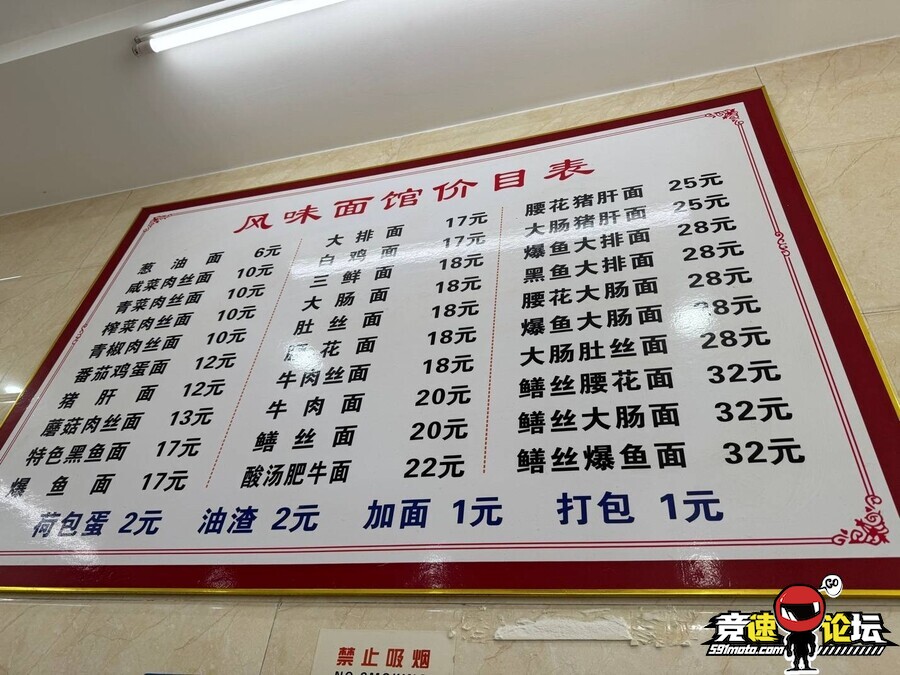 风味面馆价目表
葱油面 6元
咸菜肉丝面 10元
青菜肉丝面 10元
榨菜肉丝面 10元
青椒肉丝面 10元
番茄鸡蛋面 12元
猪肝面 12元
蘑菇肉丝面 13元
特色黑鱼面 17元
爆鱼面 17元
大排面 17元
白鸡面 17元
三鲜面 18元
大肠面 18元
肚丝面 18元
腰花面 18元
牛肉丝面 18元
牛肉面 20元
鳝丝面 20元
酸汤肥牛面 22元
腰花猪肝面 25元
大肠猪肝面 25元
爆鱼大排面 28元
黑鱼大排面 28元
腰花大肠面 28元
爆鱼大肠面 28元
大肠肚丝面 28元
鳝丝腰花面 32元
鳝丝大肠面 32元
鳝丝爆鱼面 32元
荷包蛋 2元 油渣 2元 加面 1元 打包 1元
禁止吸烟
NO SMOKING
GO
竞速论坛
591moto.com